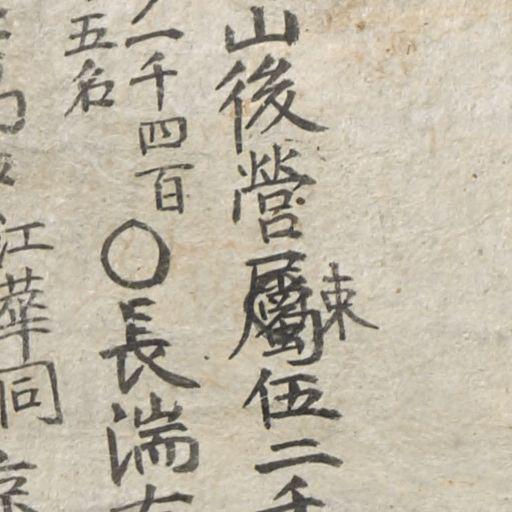 山後營屬伍二千
束
一千四百
五名
〇長湍
江華同